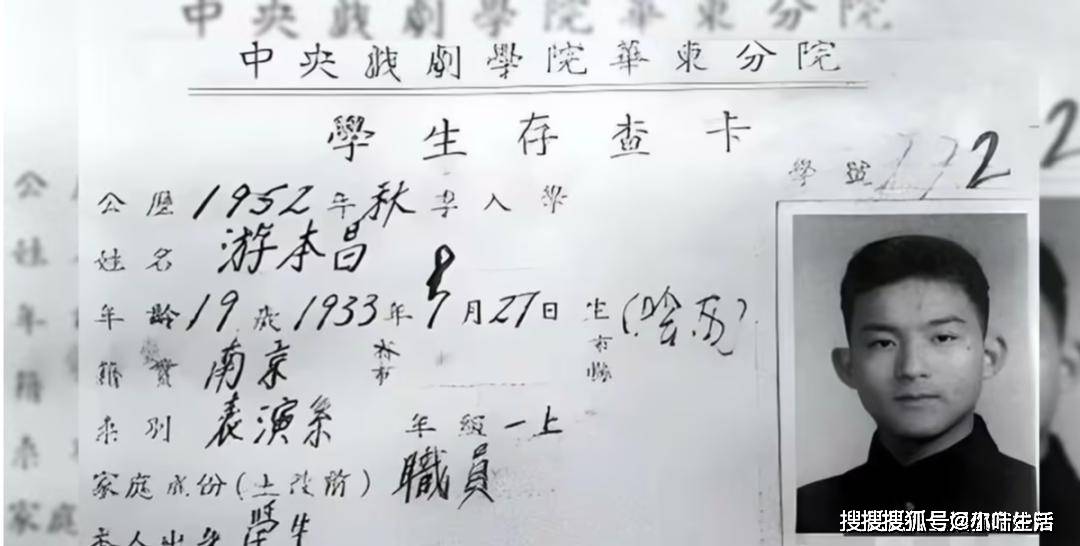 中央戏劇學院華東分院
學生存查卡
學號 172
公歷1952年秋季入學
姓名 游本昌
年齡19歲1933年8月27日生(陰历)
籍貫 南京 市 市縣
系别 表演系 年級一上
家庭成份(土改前) 職員
本人出身 學生
搜狐号@